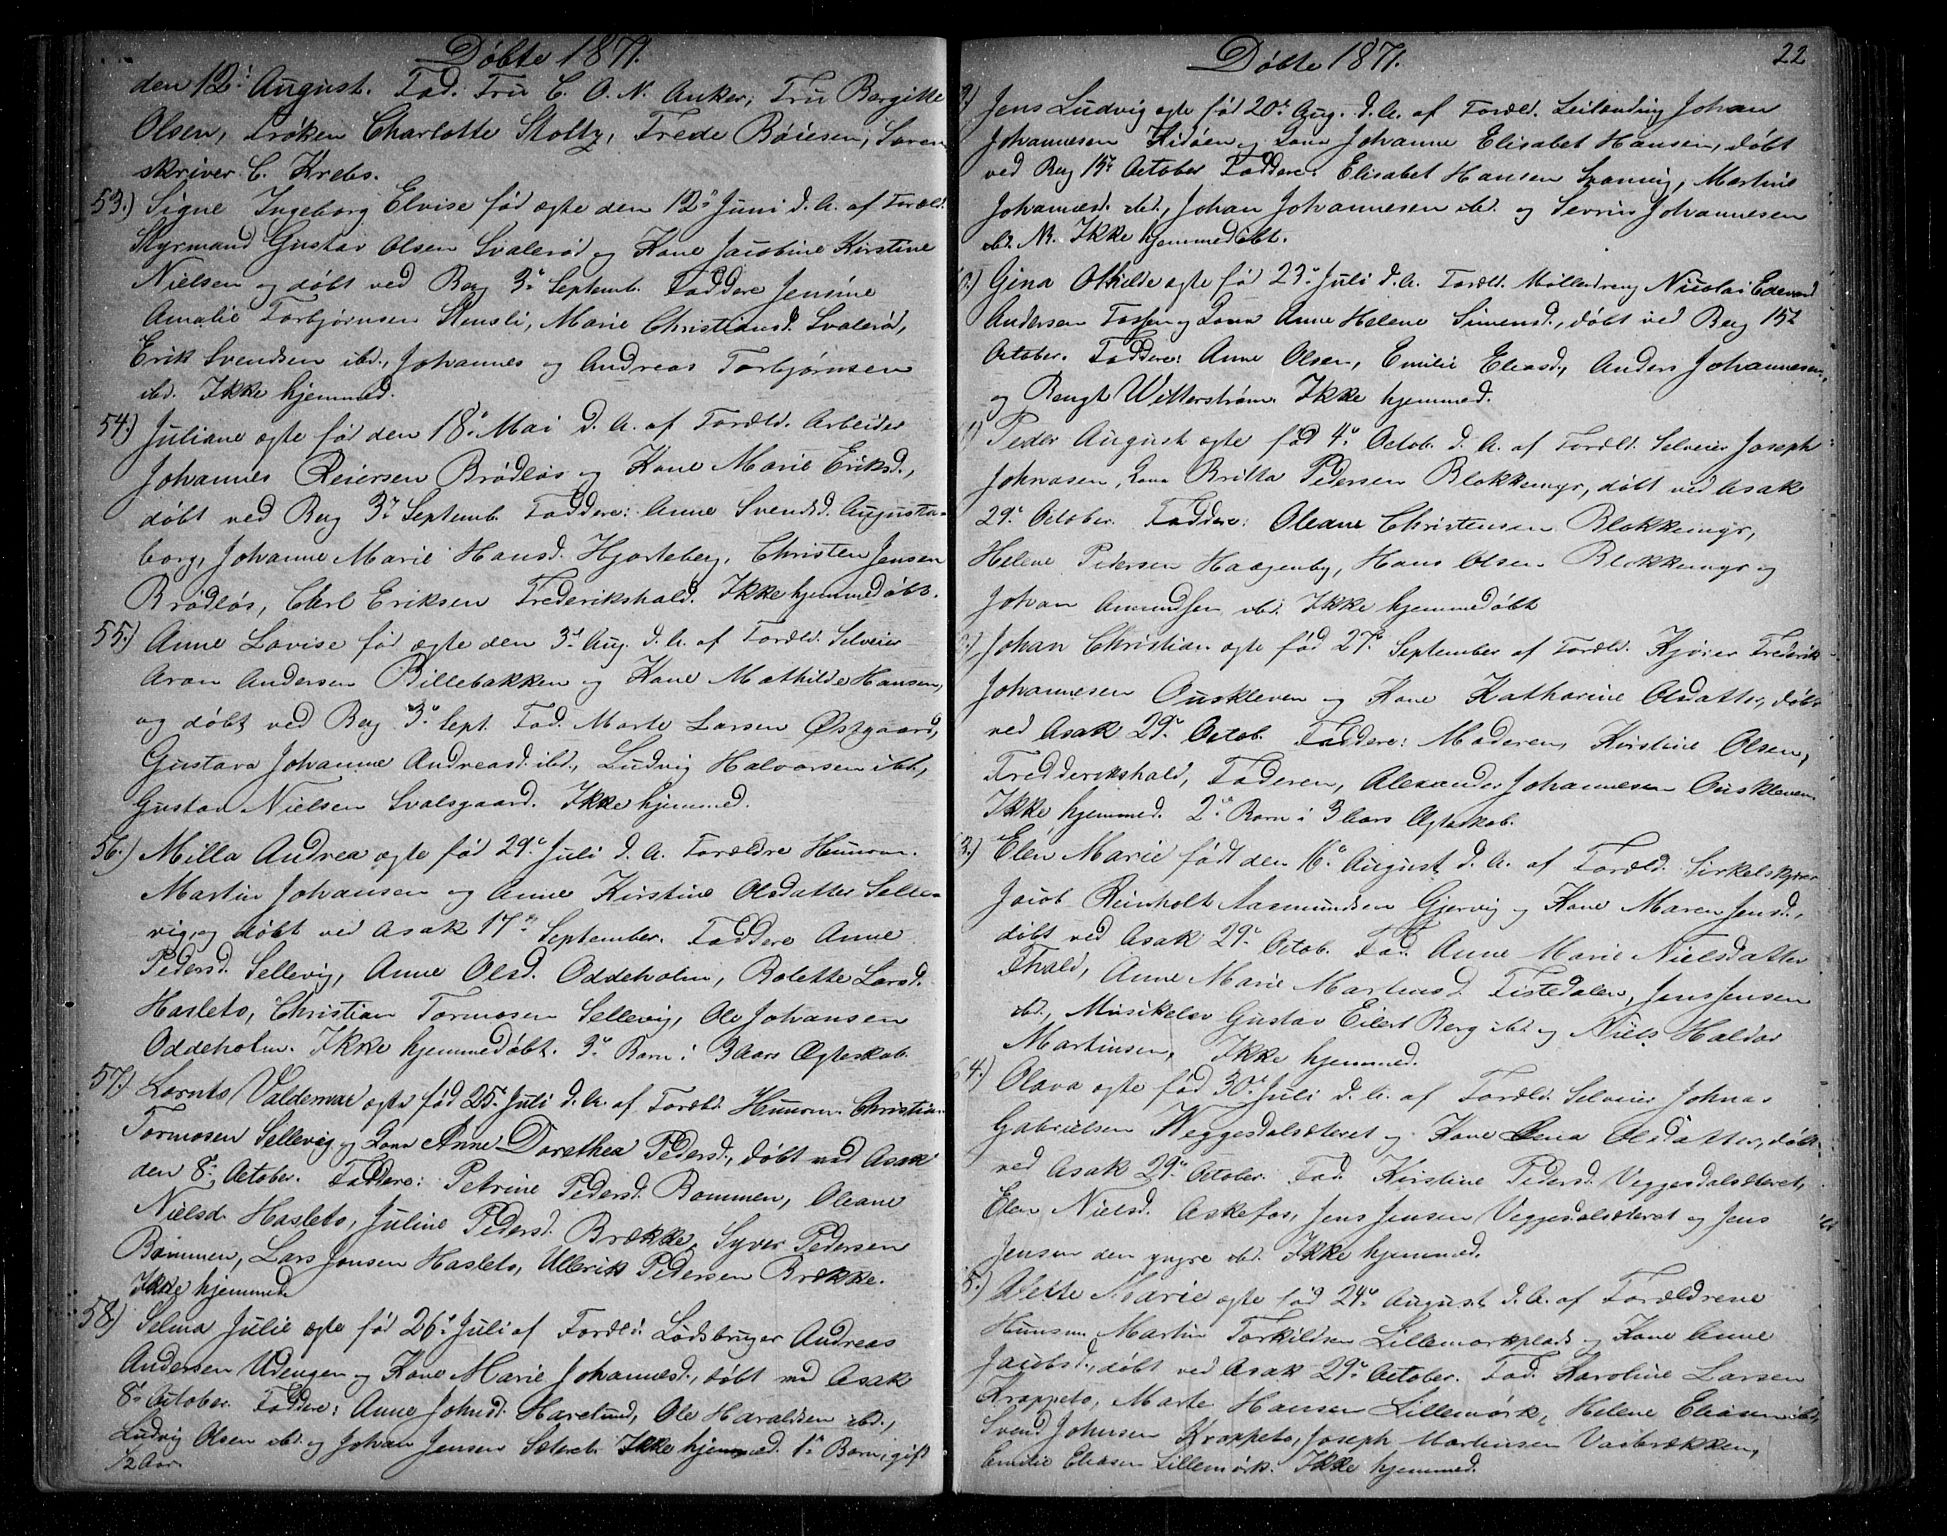 Døbte 1871.
den 12te August. Fad. Fru C. O. N. Anker, Fru Bergitte
Olsen, Frøken Charlotte Stoltz, Frede Boiesen, Soren-
skriver C. Krebs.
53.) Signe Ingeborg Elvise fød ægte den 12te Juni d. A. af Foræld.
Styrmand Gustav Olsen Svalerød og Kone Jacobine Kirstine
Nielsen og døbt ved Berg 3die Septemb. Faddere Jensine
Amalie Torbjørnsen Stensli, Marie Christiansd. Svalerød,
Erik Svendsen ibd., Johannes og Andreas Torbjørnsen
ibd. Ikke hjemmed.
54.) Juliane ægte fød den 18de Mai d. A. af Foræld. Arbeider
Johannes Reiersen Brødløs og Kone Marie Eriksd.,
døbt ved Berg 3die Septemb. Faddere: Anne Svendsd. Augusta-
borg, Johanne Marie Hansd. Hjorteberg, Christen Jensen
Brødløs, Carl Eriksen Frederikshald. Ikke hjemmedøbt.
55.) Anne Lovise fød ægte den 3die Aug. d. A. af Foræld. Selveier
Aron Andersen Billebakken og Kone Mathilde Hansen,
og døbt ved Berg 3die Sept. Fad. Marte Larsen Østgaard,
Gustava Johanne Andreasd. ibd., Ludvig Halvorsen ibd.,
Gustav Nielsen Svalsgaard. Ikke hjemmed.
56.) Milla Andrea ægte fød 29de Juli d. A. Forældre Husm.
Martin Johansen og Anne Kirstine Olsdatter Selle-
vig, og døbt ved Asak 17de September. Faddere Anne
Pedersd. Sellevig, Anne Olsd. Oddeholm, Bolette Larsd.
Hasleto, Christian Tormosen Sellevig, Ole Johansen
Oddeholm. Ikke hjemmedøbt. 3die Barn i 3 Aars Ægteskab.
57.) Lornts Valdemar ægte fød 25. Juli d. A. af Foræld. Husm. Christian
Tormosen Sellevig og Kone Anne Dorethea Pedersd., døbt ved Asak
den 8de October. Faddere: Petrine Pedersd. Bommen, Oleane
Nielsd. Hasleto, Juline Pedersd. Brække, Syver Pedersen
Bommen, Lars Jensen Hasleto, Ullerik Pedersen Brække.
Ikke hjemmed.
58.) Selma Julie ægte fød 26de Juli af Foræld. Lødsbruger Andreas
Andersen Udengen og Kone Marie Johannesd., døbt ved Asak
8de October. Faddere: Anne Johnsd. Harelund, Ole Haraldsen ibd.,
Ludvig Olsen ibd. og Johan Jensen Sæteret. Ikke hjemmed. 1ste Barn, gift
1/2 Aar.
Døbte 1871.
22
9) Jens Ludvig ægte fød 20de Aug. d. A. af Foræld. Leilending Johan
Johannesen Kidøen og Kone Johanne Elisabet Hansen, døbt
ved Berg 15de October Faddere: Elisabet Hansen Spønvig, Martine
Johannesd. ibd., Johan Johannesen ibd. og Severin Johannesen
ibd. NB. Ikke hjemmedøbt.
0.) Gina Othilde ægte fød 23de Juli d. A. Foræld. Mølledreng Nicolai Edevard
Andersen Fossen og Kone Anne Helene Simensd., døbt ved Berg 15de
October. Faddere: Anne Olsen, Emilie Eliasd., Anders Johannesen,
og Bengt Witterstrøm. Ikke hjemmed.
1) Peder August ægte fød 4de Octob. d. A. af Foræld. Selveier Joseph
Johnasen, Kone Britta Pedersen Blokkemyr, døbt ved Asak
29de October. Faddere: Oleane Christensen Blokkemyr,
Helene Pedersen Haagenby, Hans Olsen Blokkemyr og
Johan Amundsen ibd. Ikke hjemmedøbt
Johan Christian ægte fød 27de September af Foræld. Kjører Fredrik
Johannesen Ouskleven og Kone Katharine Olsdatter, døbt
ved Asak 29de Octob. Faddere: Moderen, Kirstine Olsen,
Fredderikshald, Faderen, Alexander Johannesen Ouskleven.
Ikke hjemmed. 2det Barn i 3 Aars Ægteskab.
3.) Elen Marie født den 16de August d. A. af Foræld. Sirkelskjærer
Jacob Reinholt Aasmundsen Gjervig og Kone Maren Jensd.,
døbt ved Asak 29de Octob. Fad. Anne Marie Nielsdatter
Fhald, Anne Marie Martinsd. Tistedalen, Jens Jensen
ibd., Musikelev Gustav Eilert Berg ibd. og Niels Haldor
Martinsen. Ikke hjemmed.
64.) Olava ægte fød 30de Juli d. A. af Foræld. Selveier Johnas
Gabrielsen Veggesdalsæteret og Kone Lena Olsdatter, døbt
ved Asak 29de October. Fad. Kirstine Pedersd. Veggesdalsæteret,
Elen Nielsd. Askefos, Jens Jensen Veggesdalsæteret og Jens
Jensen den yngre ibd. Ikke hjemmed.
5.) Alette Marie ægte fød 24de August d. A. af Forældrene
Husm. Martin Torkildsen Lillemørkplads og Kone Anne
Jacobsd., døbt ved Asak 29de October. Fad. Karoline Larsen
Krappeto, Marte Hansen Lillemørk, Helene Eliasen ibd.,
Svend Johnsen Krappeto, Joseph Martinsen Vasbrækken,
Emilie Eliasen Lillemørk. Ikke hjemmed.